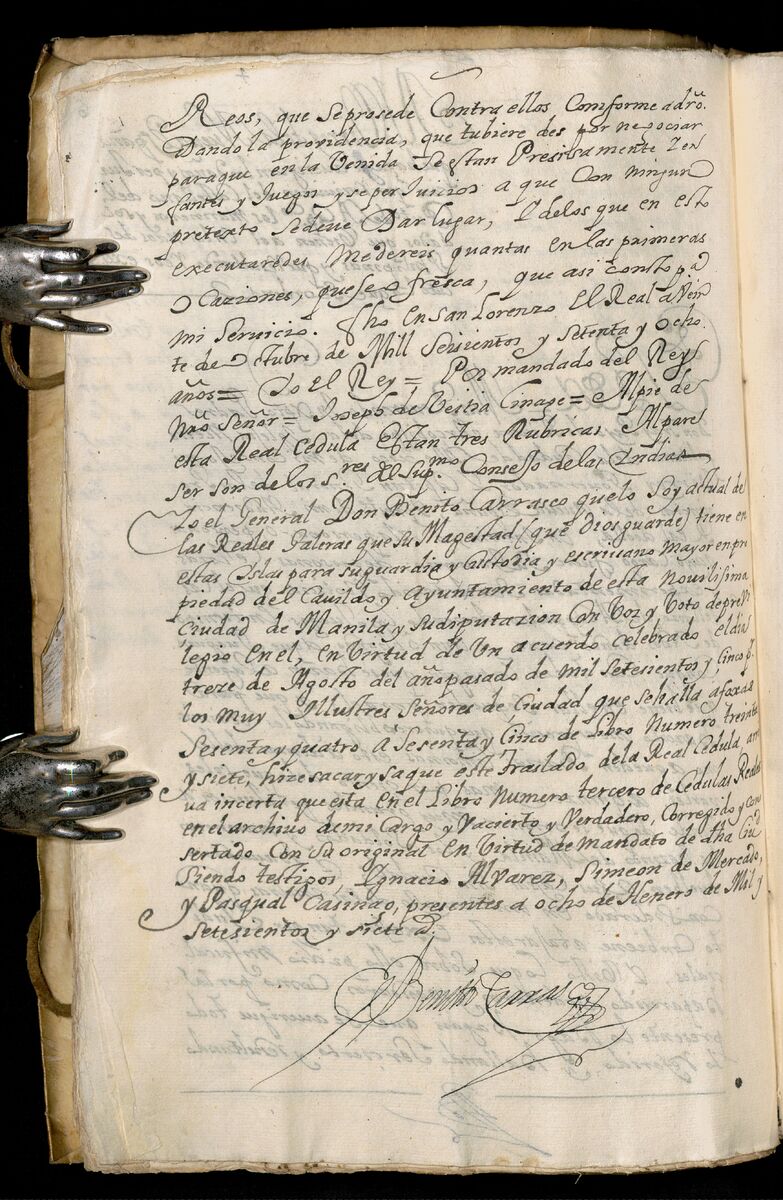 Reos, que seprosede Contra ellos Comforme adrô.
Dando la providencia, que tubiere des por negociar
paraque en la Venida se estan Precissamente
santes y Juegos y se per Juicios a que Con ningun
pretexto sedeve Dar lugar, y delos que en esto
executaredes Medereis quantas en las primeras
Ocaziones, que se ofresca, que asi consto pª
mi servicio. fho en San Lorenzo El Real a Vein
te de Octubre de Mill Seisientos y Setenta y Ocho
años = Yo El Rey = Por mandado del Rey
Nrô Señor = Joseph de Veitia Linage = Alpie de
esta Real Cedula Estan tres Rubricas Alpares
ser son de los s.res del Sup.mo Consejo de las Indias
Yo el General Don Benito Carrasco quelo soy actual de
las Reales Galeras que su Magestad (que Dios guarde) tiene en
estas Islas para su guardia y Custodia y escriuano Mayor en pro
piedad del Cavildo y Ayuntamiento de esta Novilisima
Ciudad de Manila y sudiputazion con Voz y Voto depreVi
legio en el, en Virtud de Un acuerdo celebrado eldia
treze de Agosto del año pasado de mil setesientos y Cinco p.r
los muy Illustres Señores de Ciudad que se halla afoxas
Sesenta y quatro a sesenta y Cinco de Libro Numero treinta
y siete, hize sacar y saque este traslado dela Real Cedula, arri
va incerta que esta en el Libro Numero tercero de Cedulas Reales
en el archivo de mi Cargo y Vacierto y Verdadero, Corregido y con
sertado Con su original en Virtud de mandato de dha Ciud
siendo testigos, Ignacio Alvarez, Simeon de Mercado,
y Pasqual Casinag, presentes a ocho de Henero de Mil y
setesientos y siete a.s
Benito Carrasco